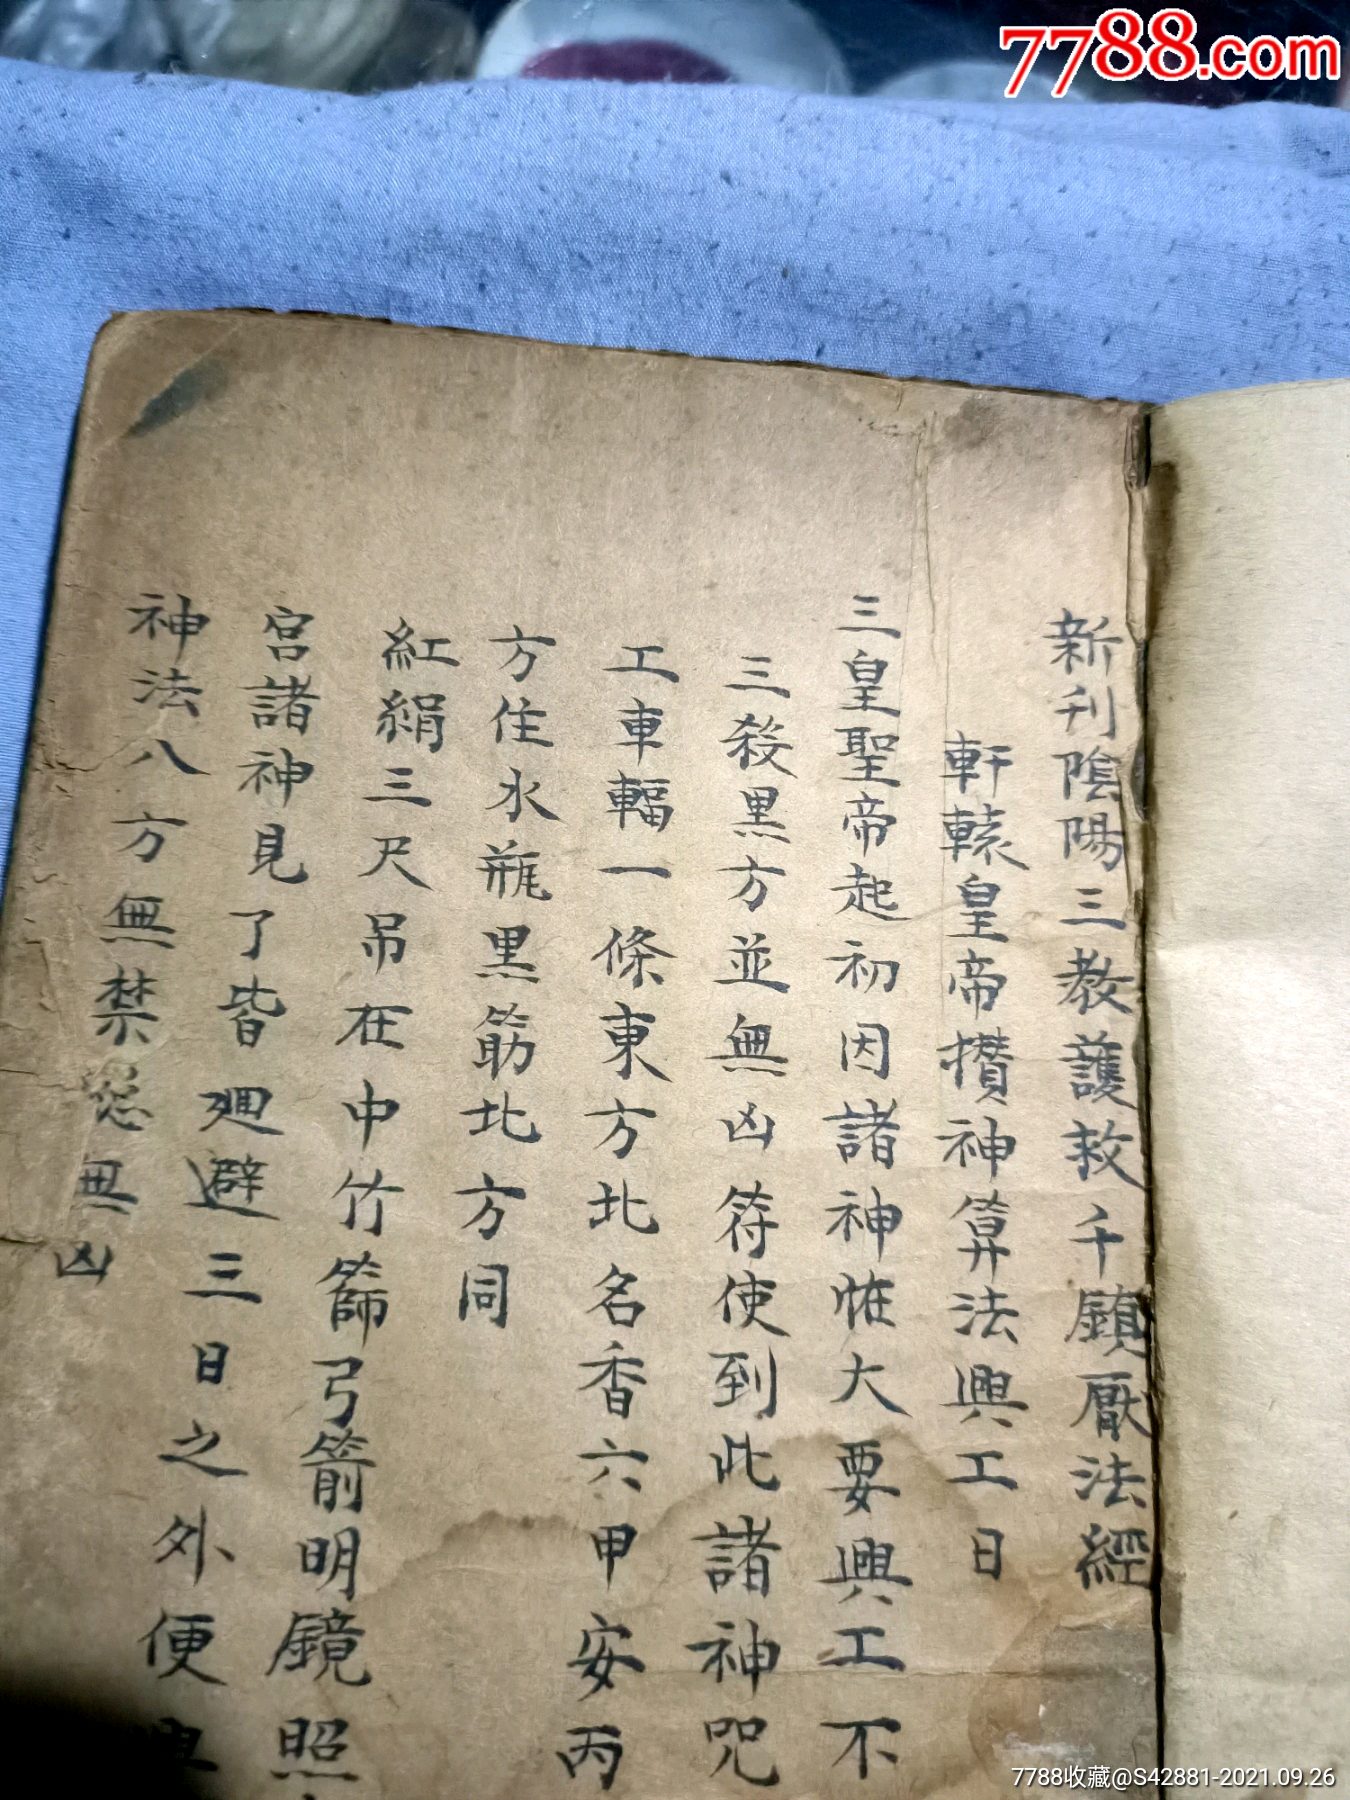 7788.com
新刊陰陽三教護救千鎮厭法經
軒轅皇帝攢神算法興工日
三皇聖帝起初因諸神惟大要興工不
三殺黑方並無凶符使到此諸神咒
工車輻一條東方北名香六甲安丙
方住水瓶黑筋北方同
紅絹三尺吊在中竹篩弓箭明鏡照
宮諸神見了皆廻避三日之外便
神法八方無禁忌無凶
7788收藏@S42881-2021.09.26